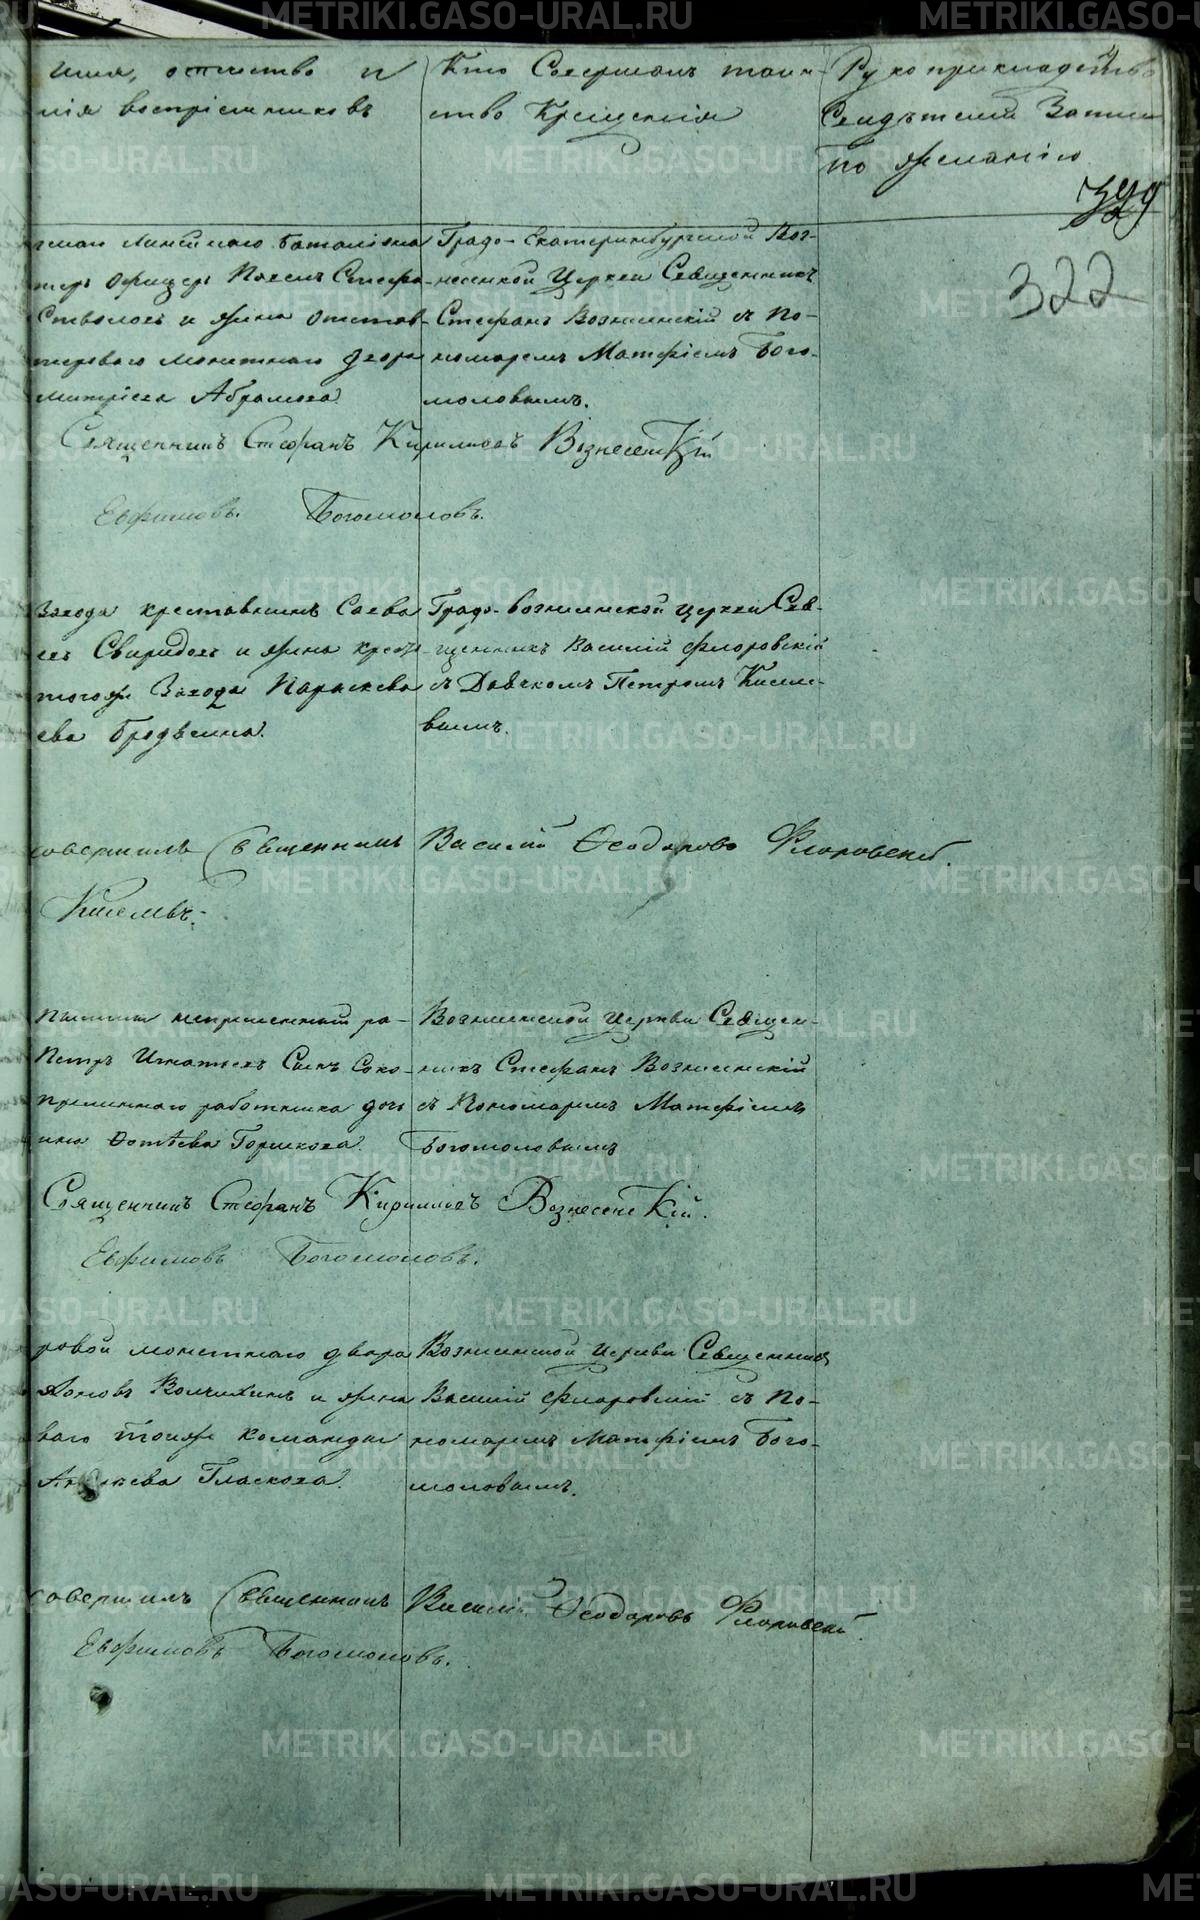 имя, отчество и
лія воспріемниковъ
Кто Совершалъ таин-
ство Крещенія
Рукоприкладство
Свидѣтелей Записи
по желанію
322
линейнаго баталіона
Офицеръ Павелъ Стефа-
Стволовъ и жена отстав-
монетнаго двора
митріева Абрамова
Градо-Екатеринбургской Воз-
несенской Церкви Священникъ
Стефанъ Вознесенскій съ По-
номаремъ Матфіемъ Бого-
моловымъ.
Священникъ Стефанъ Кирилловъ Вознесенскій
Евфимовъ Богомоловъ.
Завода крестьянинъ Савва
евъ Свиридовъ и жена крест
тогоже Завода Параскева
ева Бродвеина.
Градо-Вознесенской церкви Свя-
щенникъ Василій Флоровскій
съ Дьячкомъ Петромъ Кисле-
вымъ.
совершилъ Священникъ Василій Ѳеодоровъ Флоровскій.
непременный ра-
Петръ Игнатьевъ Сынъ Соко-
пременнаго работника дочь
Ѳотѣева Горшкова.
Вознесенской Церкви Священ-
никъ Стефанъ Вознесенскій
съ Пономаремъ Матфіемъ
Богомоловымъ
Священникъ Стефанъ Кирилловъ Вознесенскій.
Евфимовъ Богомоловъ.
ровой монетнаго двора
и жена
ваго тоиже команды
Гласкова.
Вознесенской Церкви Священникъ
Василій Флоровскій съ По-
номаремъ Матфіемъ Бого-
моловымъ.
совершилъ Священникъ Василій Ѳеодоровъ Флоровскій.
Евфимовъ Богомоловъ.
METRIKI.GASO-URAL.RU